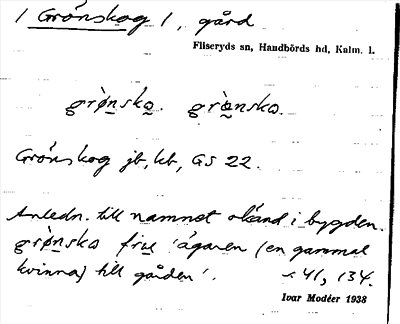 1 Grönskog 1, gård
Fliseryds sn, Handbörds hd, Kalm. l.
grø̀nsko. grø̀nsko.
Grönskog jb, kb, GS 22.
Anledn. till namnet okänd i bygden.
grø̀nsko fru 'ägaren (en gammal
kvinna) till gården'. s. 41, 134.
Ivar Modéer 1938